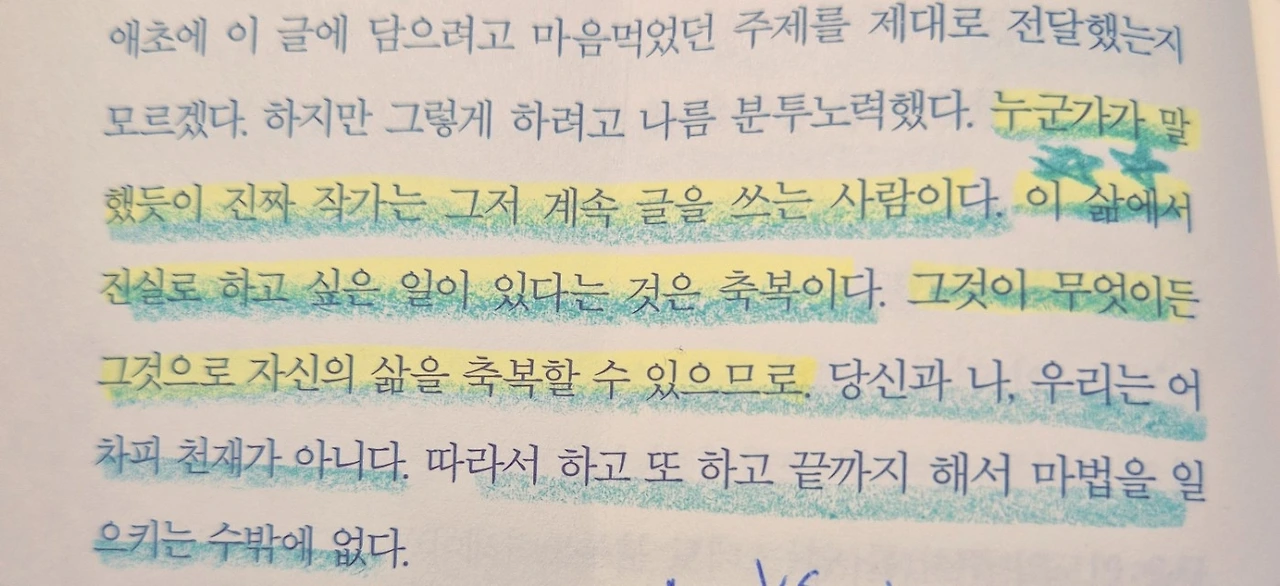 애초에 이 글에 담으려고 마음먹었던 주제를 제대로 전달했는지
모르겠다. 하지만 그렇게 하려고 나름 분투노력했다. 누군가가 말
했듯이 진짜 작가는 그저 계속 글을 쓰는 사람이다. 이 삶에서
진실로 하고 싶은 일이 있다는 것은 축복이다. 그것이 무엇이든
그것으로 자신의 삶을 축복할 수 있으므로. 당신과 나, 우리는 어
차피 천재가 아니다. 따라서 하고 또 하고 끝까지 해서 마법을 일
으키는 수밖에 없다.